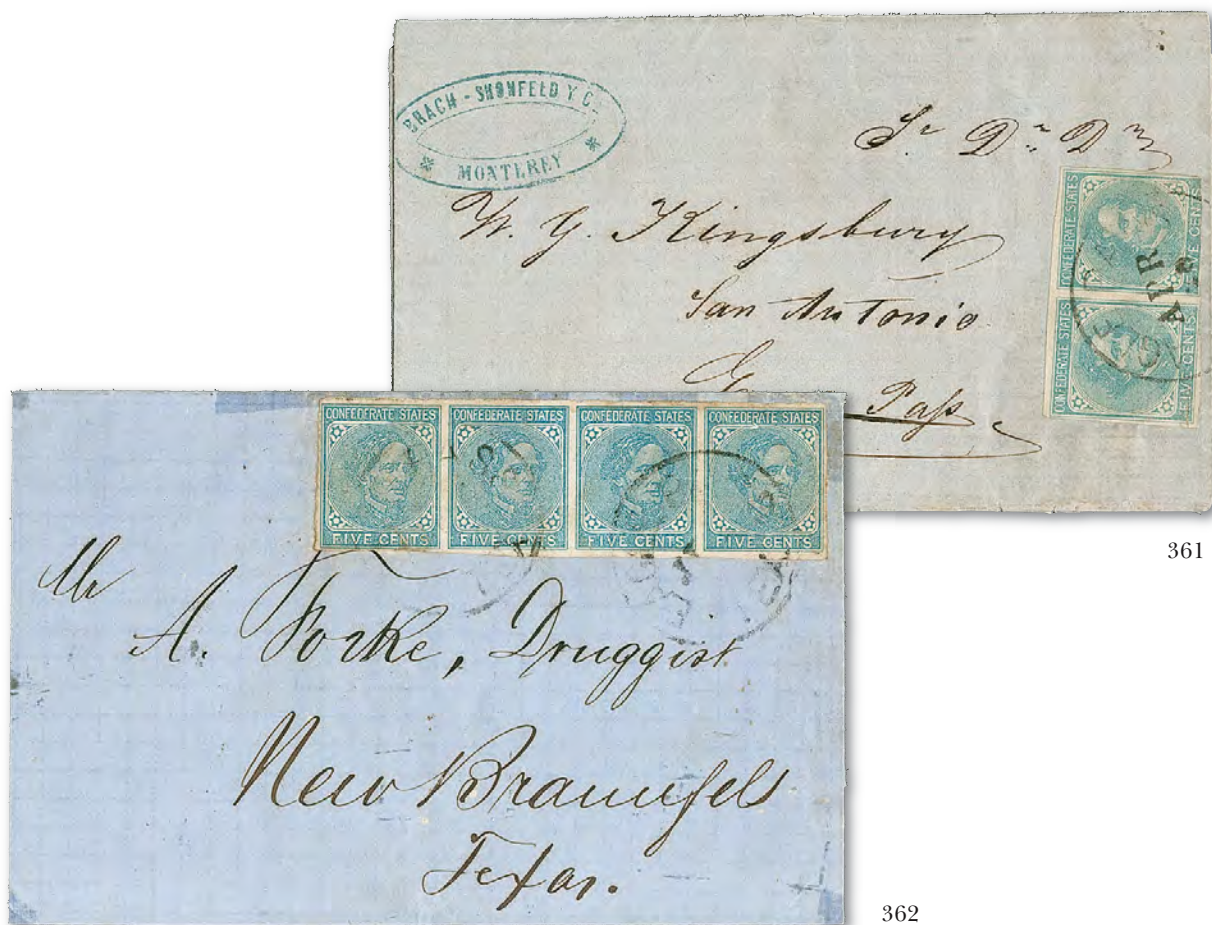 BRACH - SHONFELD Y C.
* MONTEREY *
Sr Dn Dn
W. G. Kingsbury
San Antonio
Pass
CONFEDERATE STATES
FIVE CENTS
CONFEDERATE STATES
FIVE CENTS
APR
361
CONFEDERATE STATES CONFEDERATE STATES CONFEDERATE STATES CONFEDERATE STATES
FIVE CENTS FIVE CENTS FIVE CENTS FIVE CENTS
Mr
A. Forke, Druggist
New Braunfels
Texas.
362